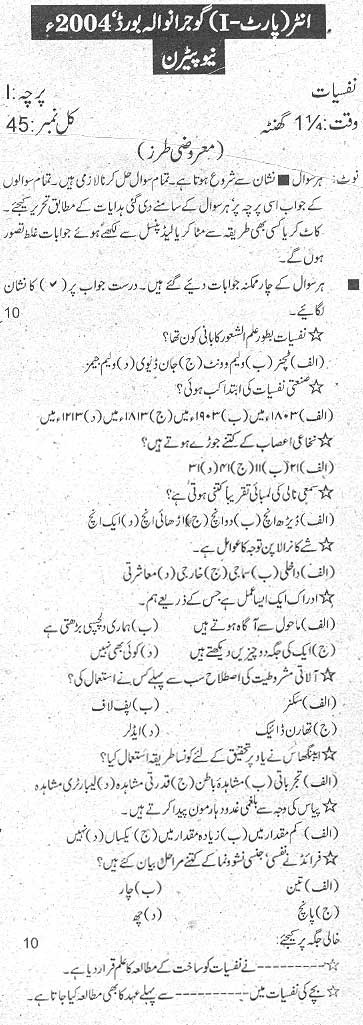 انٹر (پارٹ-I) گوجرانوالہ بورڈ، 2004ء
نیو پیٹرن
نفسیات پرچہ: I
وقت: 1¼ گھنٹہ کل نمبر: 45
(معروضی طرز)
نوٹ: ہر سوال ■ نشان سے شروع ہوتا ہے۔ تمام سوال حل کرنا لازمی ہیں۔ تمام سوالوں
کے جواب اسی پرچہ پر ہر سوال کے سامنے دی گئی ہدایات کے مطابق تحریر کیجئے۔
کاٹ کر یا کسی بھی طریقہ سے مٹا کر یا لیڈ پنسل سے لکھے ہوئے جوابات غلط تصور
ہوں گے۔
■ ہر سوال کے چار ممکنہ جوابات دیئے گئے ہیں۔ درست جواب پر (✓) کا نشان
لگائیے۔ 10
☆ نفسیات بطور علم الشعور کا بانی کون تھا؟
(الف) ٹچنر (ب) ولیم وونٹ (ج) جان ڈیوی (د) ولیم جیمز
☆ صنعتی نفسیات کی ابتدا کب ہوئی؟
(الف) ۱۸۰۳ء میں (ب) ۱۹۰۳ء میں (ج) ۱۸۱۳ء میں (د) ۱۲۱۳ء میں
☆ نخاعی اعصاب کے کتنے جوڑے ہوتے ہیں؟
(الف) ۲۱ (ب) ۱۱ (ج) ۴۱ (د) ۳۱
☆ سمعی نالی کی لمبائی تقریباً کتنی ہوتی ہے؟
(الف) ڈیڑھ انچ (ب) دو انچ (ج) اڑھائی انچ (د) ایک انچ
☆ شے کا نرالا پن توجہ کا عوامل ہے۔
(الف) داخلی (ب) سماجی (ج) خارجی (د) معاشرتی
☆ ادراک ایک ایسا عمل ہے جس کے ذریعے ہم۔
(الف) ماحول سے آگاہ ہوتے ہیں (ب) ہماری دلچسپی بڑھتی ہے
(ج) ایک کی جگہ دو چیزیں دیکھتے ہیں (د) کوئی بھی نہیں
☆ آلاتی مشروطیت کی اصطلاح سب سے پہلے کس نے استعمال کی؟
(الف) سکنر (ب) پف لاف
(ج) تھارن ڈائیک (د) ایڈلر
☆ ایبنگھاس نے یاد پر تحقیق کے لئے کونسا طریقہ استعمال کیا؟
(الف) تجرباتی (ب) مشاہدہ باطن (ج) قدرتی مشاہدہ (د) لیبارٹری مشاہدہ
☆ پیاس کی وجہ سے بلغمی غدود ہارمون پیدا کرتے ہیں۔
(الف) کم مقدار میں (ب) زیادہ مقدار میں (ج) یکساں (د) نہیں
☆ فرائڈ نے نفسی جنسی نشوونما کے کتنے مراحل بیان کئے ہیں؟
(الف) تین (ب) چار
(ج) پانچ (د) چھ
خالی جگہ پر کیجئے: 10
☆ ---------- نے نفسیات کو ساخت کے مطالعہ کا علم قرار دیا ہے۔
☆ بچے کی نفسیات میں ---------- سے پہلے عہد کا بھی مطالعہ کیا جاتا ہے۔